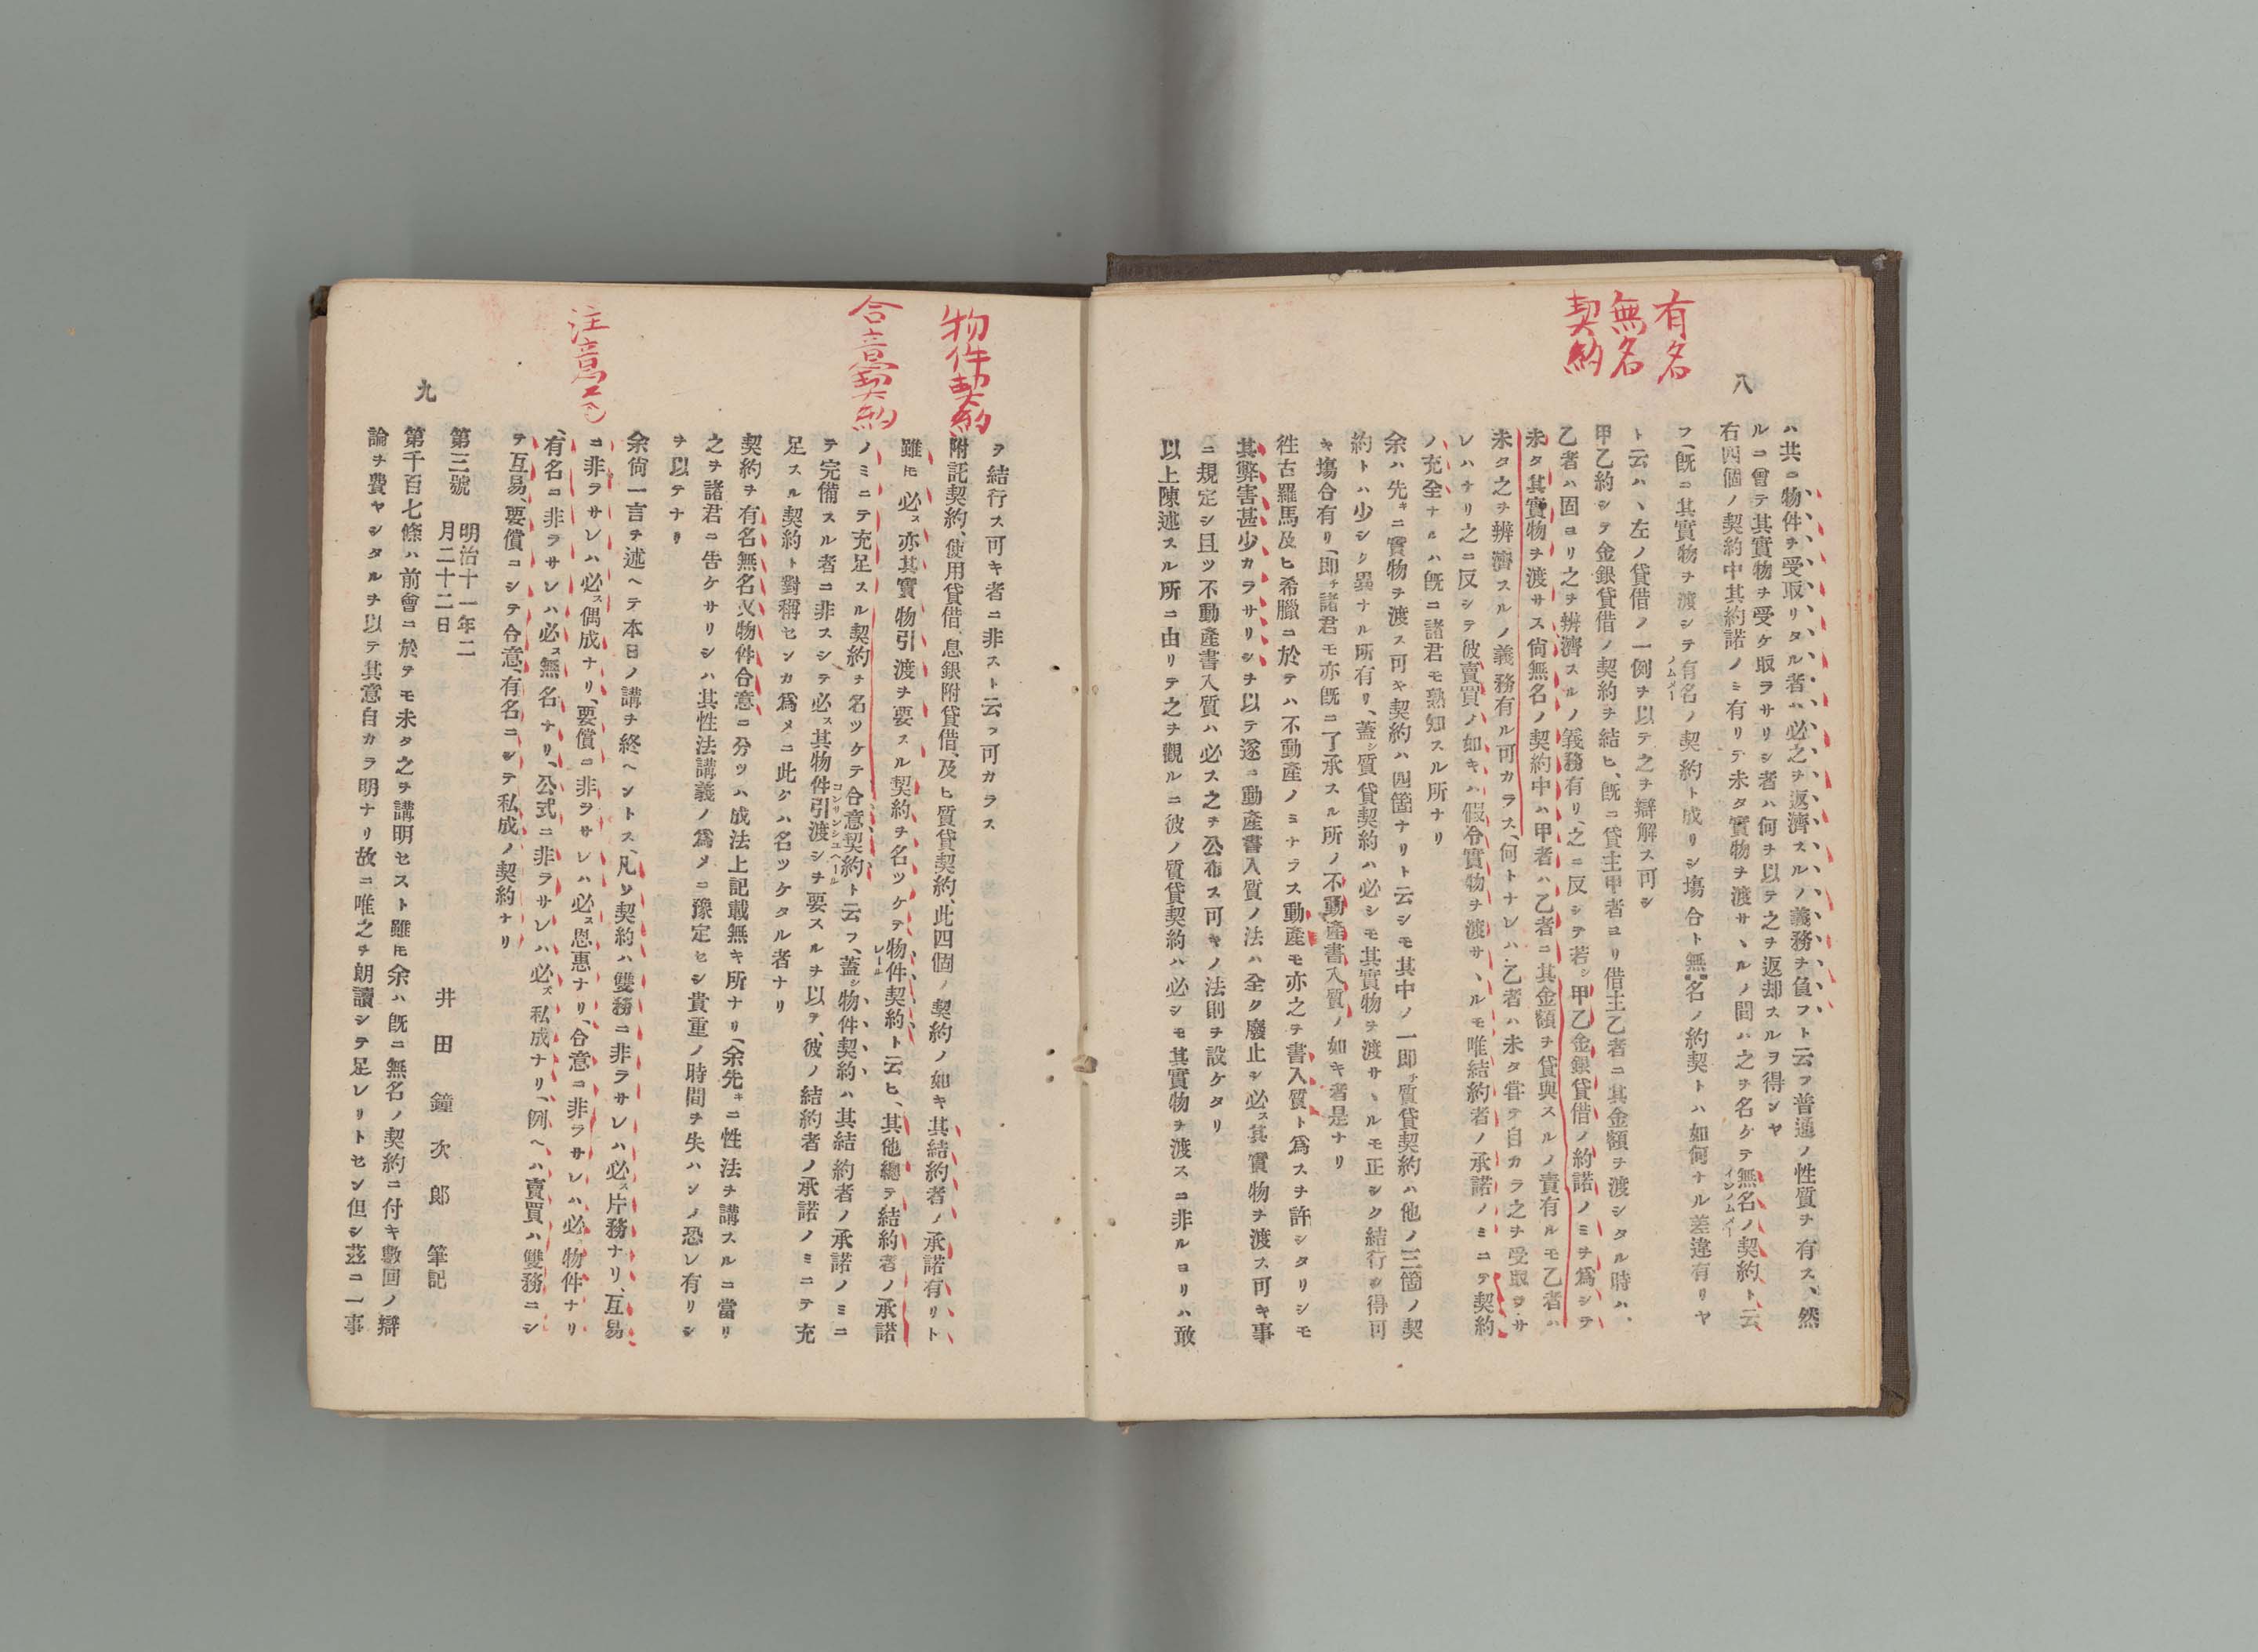 有名
無名
契約
八
ハ共ニ物件ヲ受取リタル者ハ必之ヲ返濟スルノ義務ヲ負フト云フ普通ノ性質ヲ有ス、然
ルニ曾テ其實物ヲ受ケ取ラサリシ者ハ何ヲ以テ之ヲ返却スルヲ得ンヤ
右四個ノ契約中其約諾ノミ有リテ未タ實物ヲ渡サヽルノ間ハ之ヲ名ケテ無名ノ契約ト云
インノムメー
フ、既ニ其實物ヲ渡シテ有名ノ契約ト成リシ塲合ト無名ノ約契トハ如何ナル差違有リヤ
ノムメー
ト云ハヽ左ノ貸借ノ一例ヲ以テ之ヲ辯解ス可シ
甲乙約シテ金銀貸借ノ契約ヲ結ヒ、既ニ貸主甲者ヨリ借主乙者ニ其金額ヲ渡シタル時ハ、
乙者ハ固ヨリ之ヲ辨濟スルノ義務有リ、之ニ反シテ若シ甲乙金銀貸借ノ約諾ノミヲ爲シテ
未タ其實物ヲ渡サス尙無名ノ契約中ハ甲者ハ乙者ニ其金額ヲ貸與スルノ責有ルモ乙者ハ
未タ之ヲ辨濟スルノ義務有ル可カラス、何トナレハ乙者ハ未タ甞テ自カラ之ヲ受取ラサ
レハナリ之ニ反シテ彼賣買ノ如キハ假令實物ヲ渡サヽルモ唯結約者ノ承諾ノミニテ契約
ノ充全ナルハ既ニ諸君モ熟知スル所ナリ
余ハ先キニ實物ヲ渡ス可キ契約ハ四箇ナリト云シモ其中ノ一即チ質貸契約ハ他ノ三箇ノ契
約トハ少シク異ナル所有リ、蓋シ質貸契約ハ必シモ其實物ヲ渡サヽルモ正シク結行シ得可
キ塲合有リ、即チ諸君モ亦既ニ了承スル所ノ不動產書入質ノ如キ者是ナリ
徃古羅馬及ヒ希臘ニ於テハ不動產ノミナラス動產モ亦之ヲ書入質ト爲スヲ許シタリシモ
其弊害甚少カラサリシヲ以テ遂ニ動產書入質ノ法ハ全ク廢止シ必ス其實物ヲ渡ス可キ事
ニ規定シ且ツ不動產書入質ハ必ス之ヲ公布ス可キノ法則ヲ設ケタリ
以上陳述スル所ニ由リテ之ヲ觀ルニ彼ノ質貸契約ハ必シモ其實物ヲ渡スニ非ルヨリハ敢
物件契約
合意契約
注意
九
ヲ結行ス可キ者ニ非スト云フ可カラス
附託契約、使用貸借、息銀附貸借、及ヒ質貸契約、此四個ノ契約ノ如キ其結約者ノ承諾有リト
雖𪜈必ス亦其實物引渡ヲ要スル契約ヲ名ツケテ物件契約ト云ヒ、其他總テ結約者ノ承諾
レール
ノミニテ充足スル契約ヲ名ツケテ合意契約ト云フ、蓋シ物件契約ハ其結約者ノ承諾ノミニ
コンリンシュヘール
テ完備スル者ニ非スシテ必ス其物件引渡シヲ要スルヲ以テ、彼ノ結約者ノ承諾ノミニテ充
足スル契約ト對稱センカ爲メニ此クハ名ツケタル者ナリ
契約ヲ有名無名又物件合意ニ分ツハ成法上記載無キ所ナリ(余先キニ性法ヲ講スルニ當リ
之ヲ諸君ニ告ケサリシハ其性法講義ノ爲メニ豫定セシ貴重ノ時間ヲ失ハンノ恐レ有リシ
ヲ以テナリ
余尙一言ヲ述ヘテ本日ノ講ヲ終ヘントス、凡ソ契約ハ雙務ニ非ラサレハ必ス片務ナリ、互易
ニ非ラサレハ必ス偶成ナリ、要償ニ非ラサレハ必ス恩惠ナリ、合意ニ非ラサレハ必物件ナリ
有名ニ非ラサレハ必ス無名ナリ、公式ニ非ラサレハ必ス私成ナリ、例ヘハ賣買ハ雙務ニシ
テ互易、要償ニシテ合意、有名ニシテ私成ノ契約ナリ
第三號 明治十一年二月二十二日 井田鐘次郎 筆記
第千百七條ハ前會ニ於テモ未タ之ヲ講明セスト雖𪜈余ハ既ニ無名ノ契約ニ付キ數回ノ辯
論ヲ費ヤシタルヲ以テ其意自カラ明ナリ故ニ唯之ヲ朗讀シテ足レリトセン但シ茲ニ一事